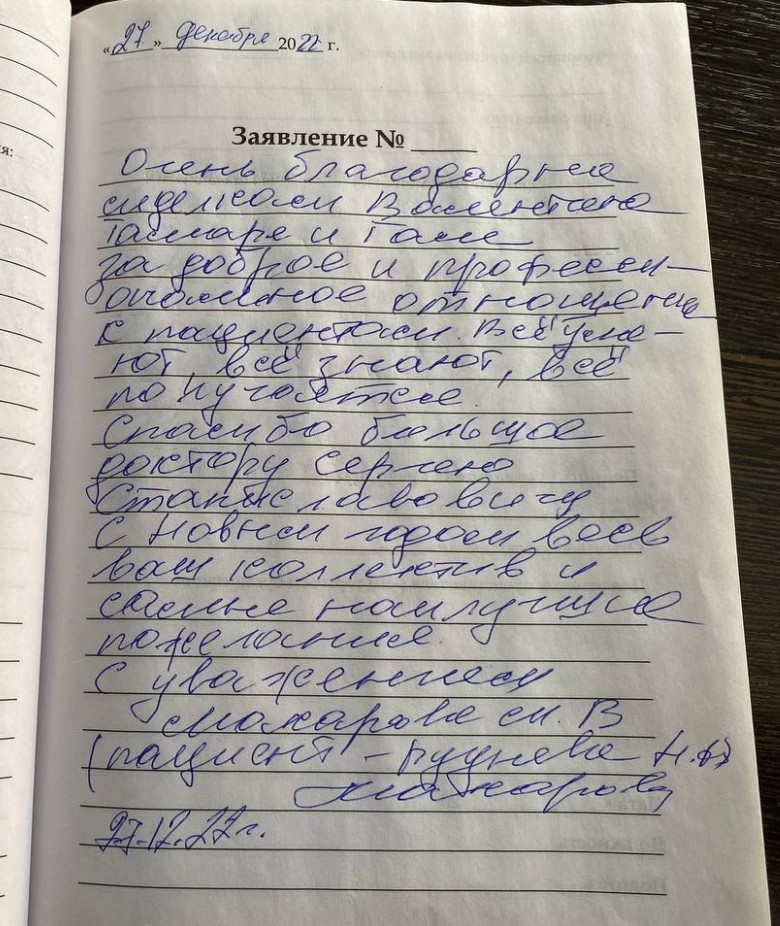 « 27 » декабря 2022 г.
Заявление №
Очень благодарна
сиделкам Валентине
Тамаре и Гале
за доброе и професси-
ональное отношение
к пациентам. Всё уме-
ют, всё знают, всё
получается.
Спасибо большое
доктору Сергею
Станиславовичу
С Новым годом весь
ваш коллектив и
самые наилучшие
пожелания.
С уважением
Макарова М. В
(пациент - Руднева Н.
Макарова
27.12.22 г.
я: